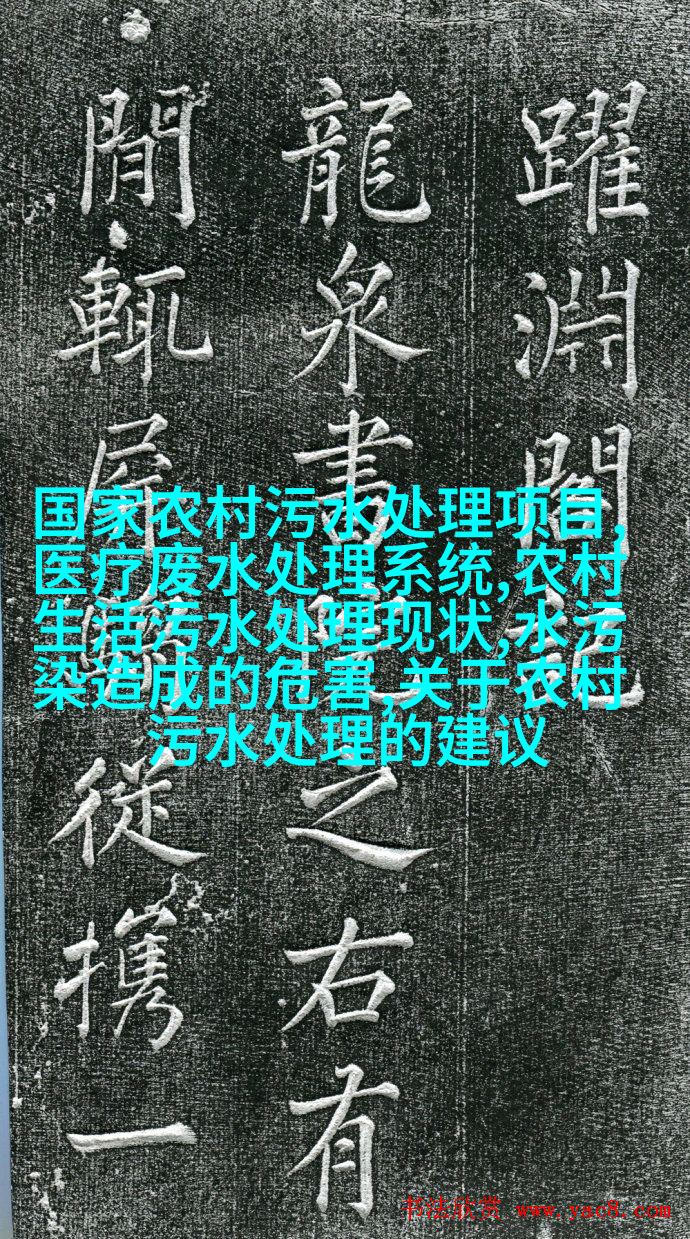 躍淵閣記
龍泉書院之右有
閒輒屏從擕一
国家农村污水处理项目,
医疗废水处理系统,农村
生活污水处理现状,水污
染造成的危害,关于农村
污水处理的建议
书法欣赏 www.yac8.com